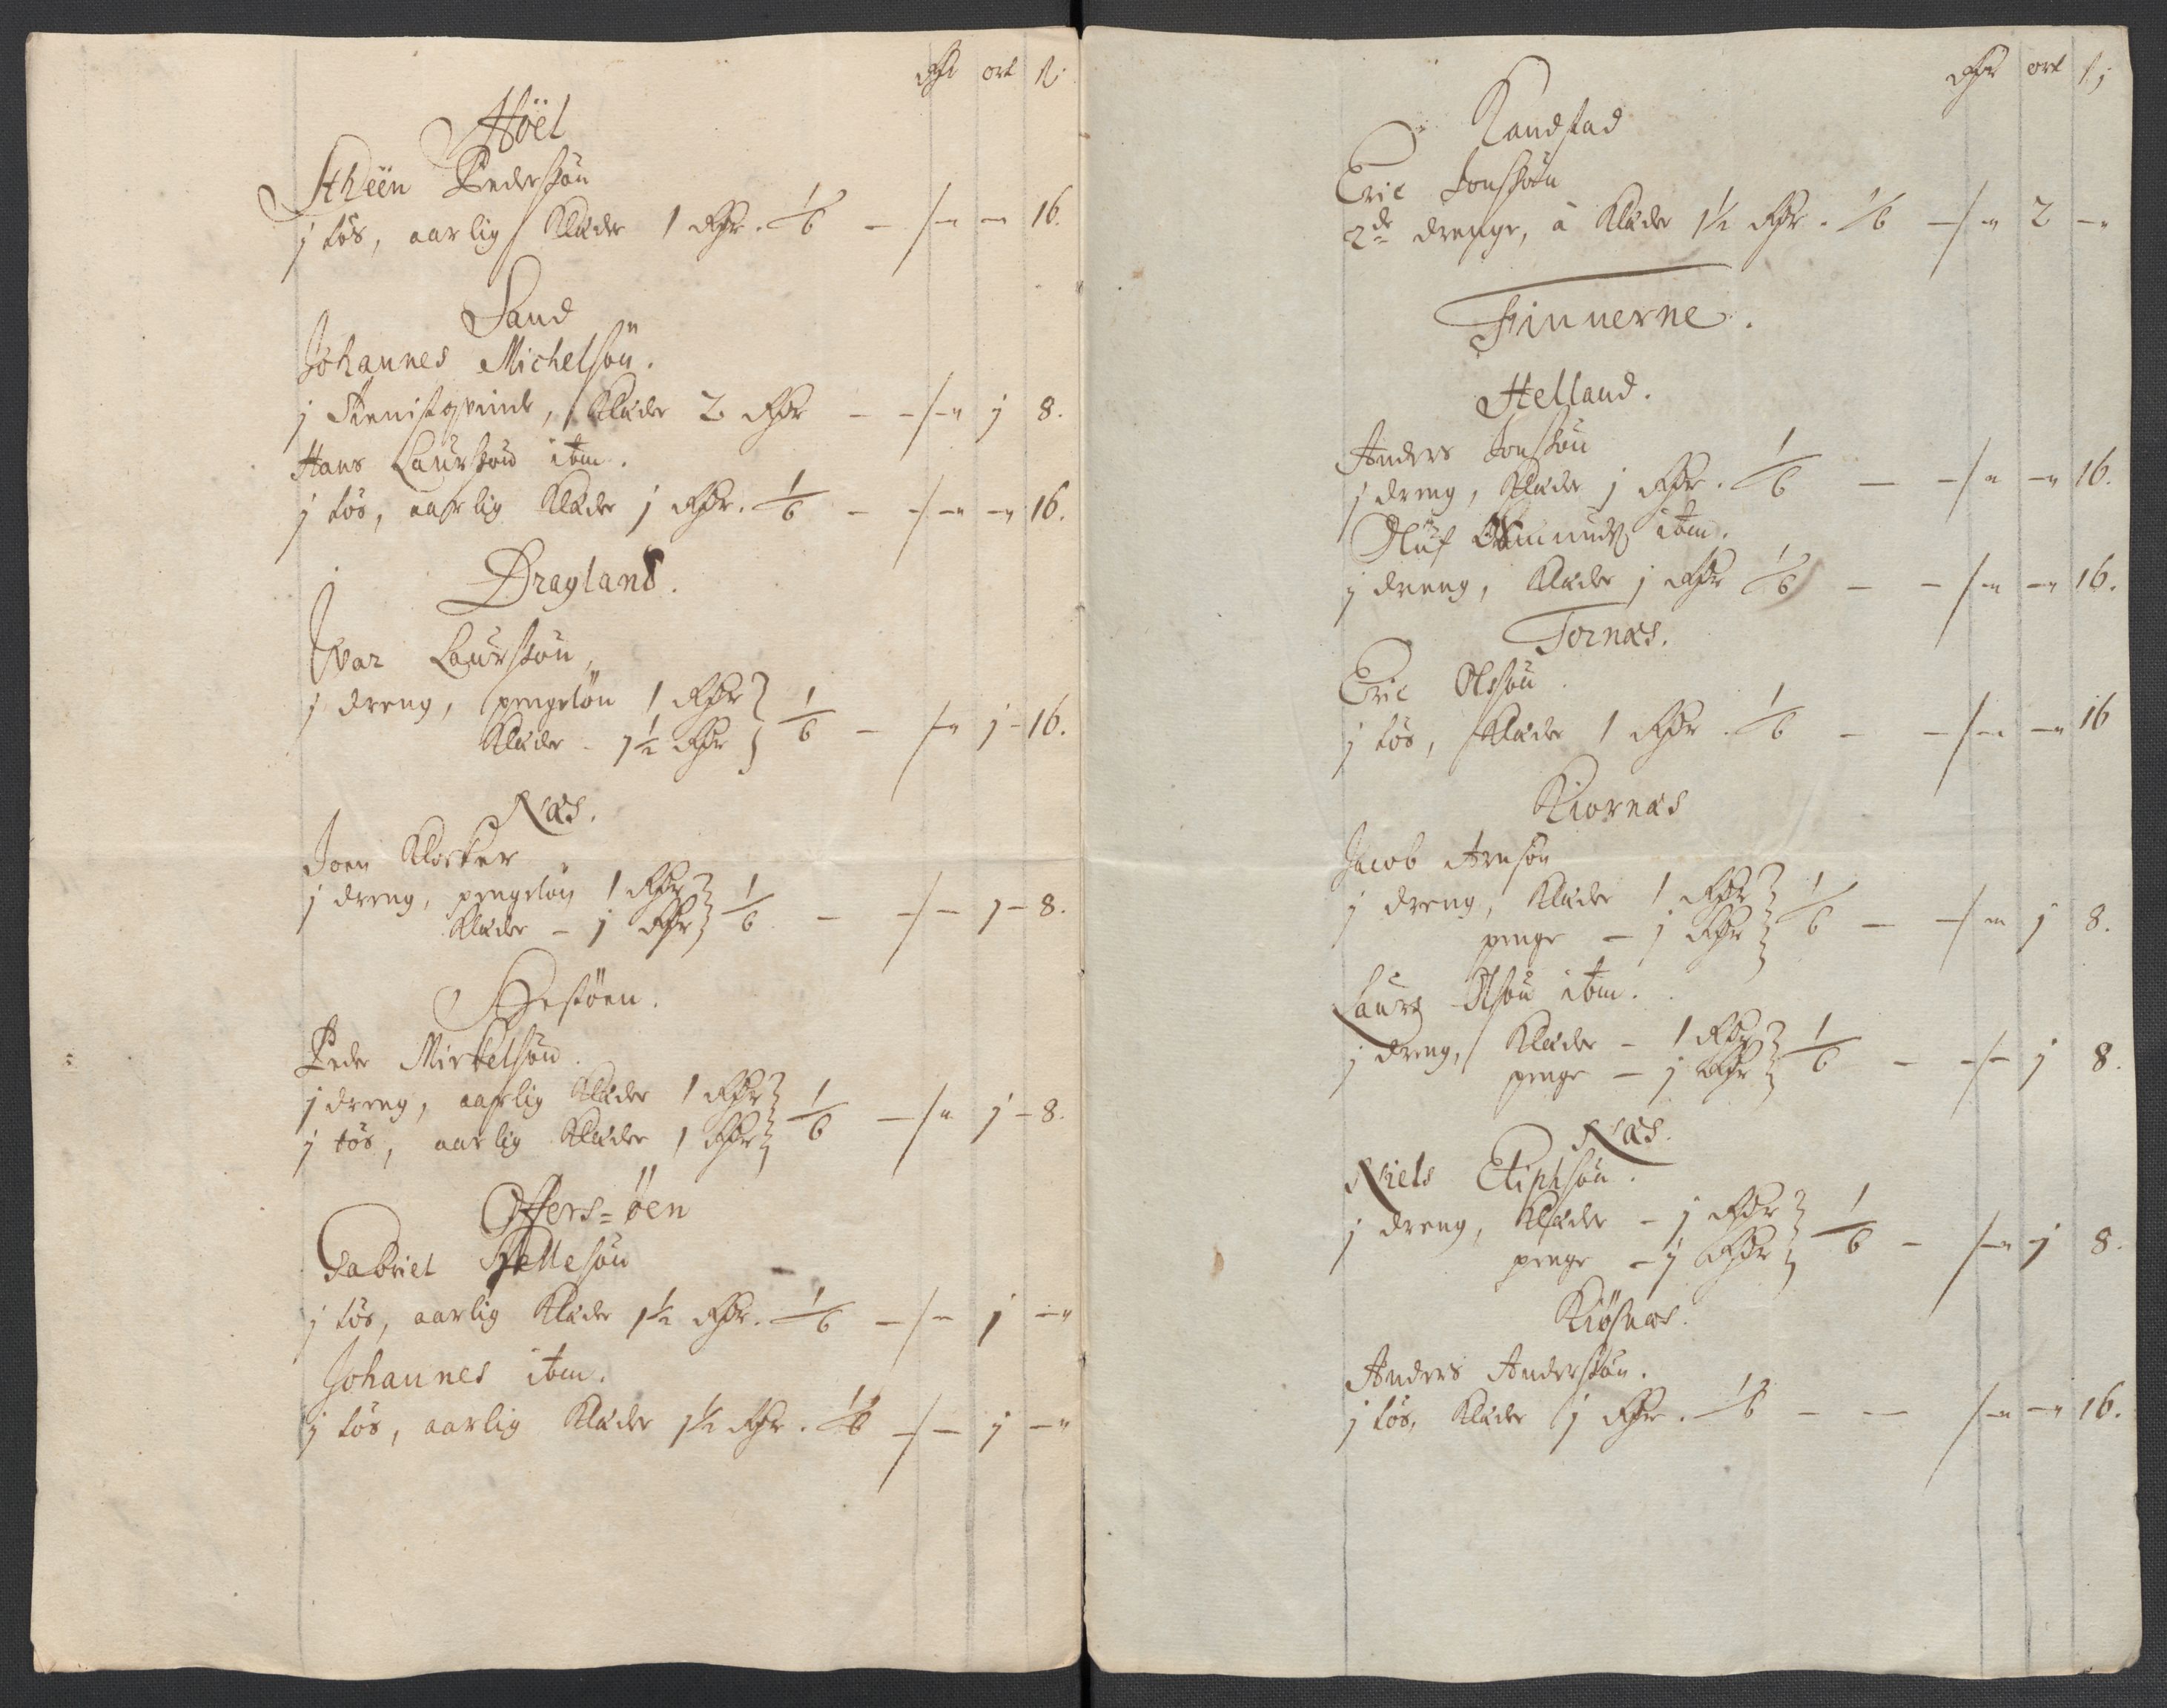 Rdr ort ß
Höel
Stheen Pedersøn
j tøs, aarlig Klæder 1 Rdr. 1/6 - - - 16.
Sand
Johannes Michelsøn.
j Tienistqvinde, Klæder 2 Rdr - - - j 8.
Hans Laursøn ibm.
j tøs, aarlig Klæder j Rdr. 1/6 - - - 16.
Dragland.
Ivar Laursøn
j dreng, pengeløn 1 Rdr
Klæder - 1½ Rdr 1/6 - - j - 16.
Næs.
Joen Klocker
j dreng, pengeløn 1 Rdr
Klæder - j Rdr 1/6 - - - j - 8.
Hestøen.
Peder Mickelsøn.
j dreng, aarlig Klæder 1 Rdr
j tøs, aarlig Klæder 1 Rdr 1/6 - - j - 8.
Offers=öen
Gabriel Pellesøn
j tøs, aarlig Klæder 1½ Rdr. 1/6 - - j -
Johannes ibm.
j tøs, aarlig Klæder 1½ Rdr. 1/6 - - j -
Rdr ort ß
Kandstad
Eric Jonsøn
2de drenge, à Klæder 1½ Rdr. 1/6 - - 2 -
Finnerne.
Helland.
Anders Jonsøn
j dreng, Klæder j Rdr. 1/6 - - - - 16.
Oluf ibm.
j dreng, Klæder j Rdr 1/6 - - - - 16.
Tornæs.
Eric Olsøn
j tøs, Klæder 1 Rdr. 1/6 - - - - 16
Kiornæs
Jacob Arnsøn
j dreng, Klæder 1 Rdr
penge - j Rdr 1/6 - - - j 8.
Laurs Olsøn ibm.
j dreng, Klæder - 1 Rdr
penge - j Rdr 1/6 - - - j 8.
Næs.
Niels Eliphsøn.
j dreng, Klæder - j Rdr
penge - j Rdr 1/6 - - j 8.
Kiösnæs.
Anders Andersøn.
j tøs, Klæder j Rdr. 1/6 - - - - 16.